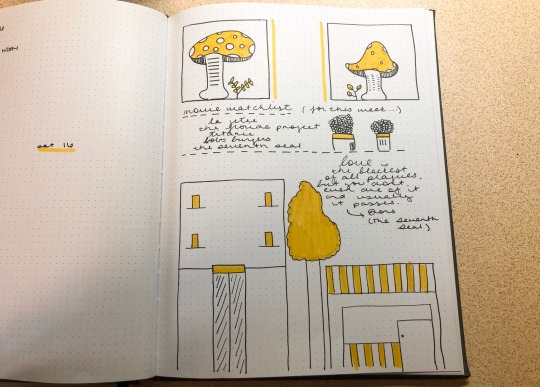 HDAY
oct 16
movie watchlist (for this week...)
la jetée
the florida project
titanic
bob's burgers
the seventh seal
love is
the blackest
of all plagues,
but you don't
even die of it
and usually
it passes.
→ Jöns
(the seventh
seal)